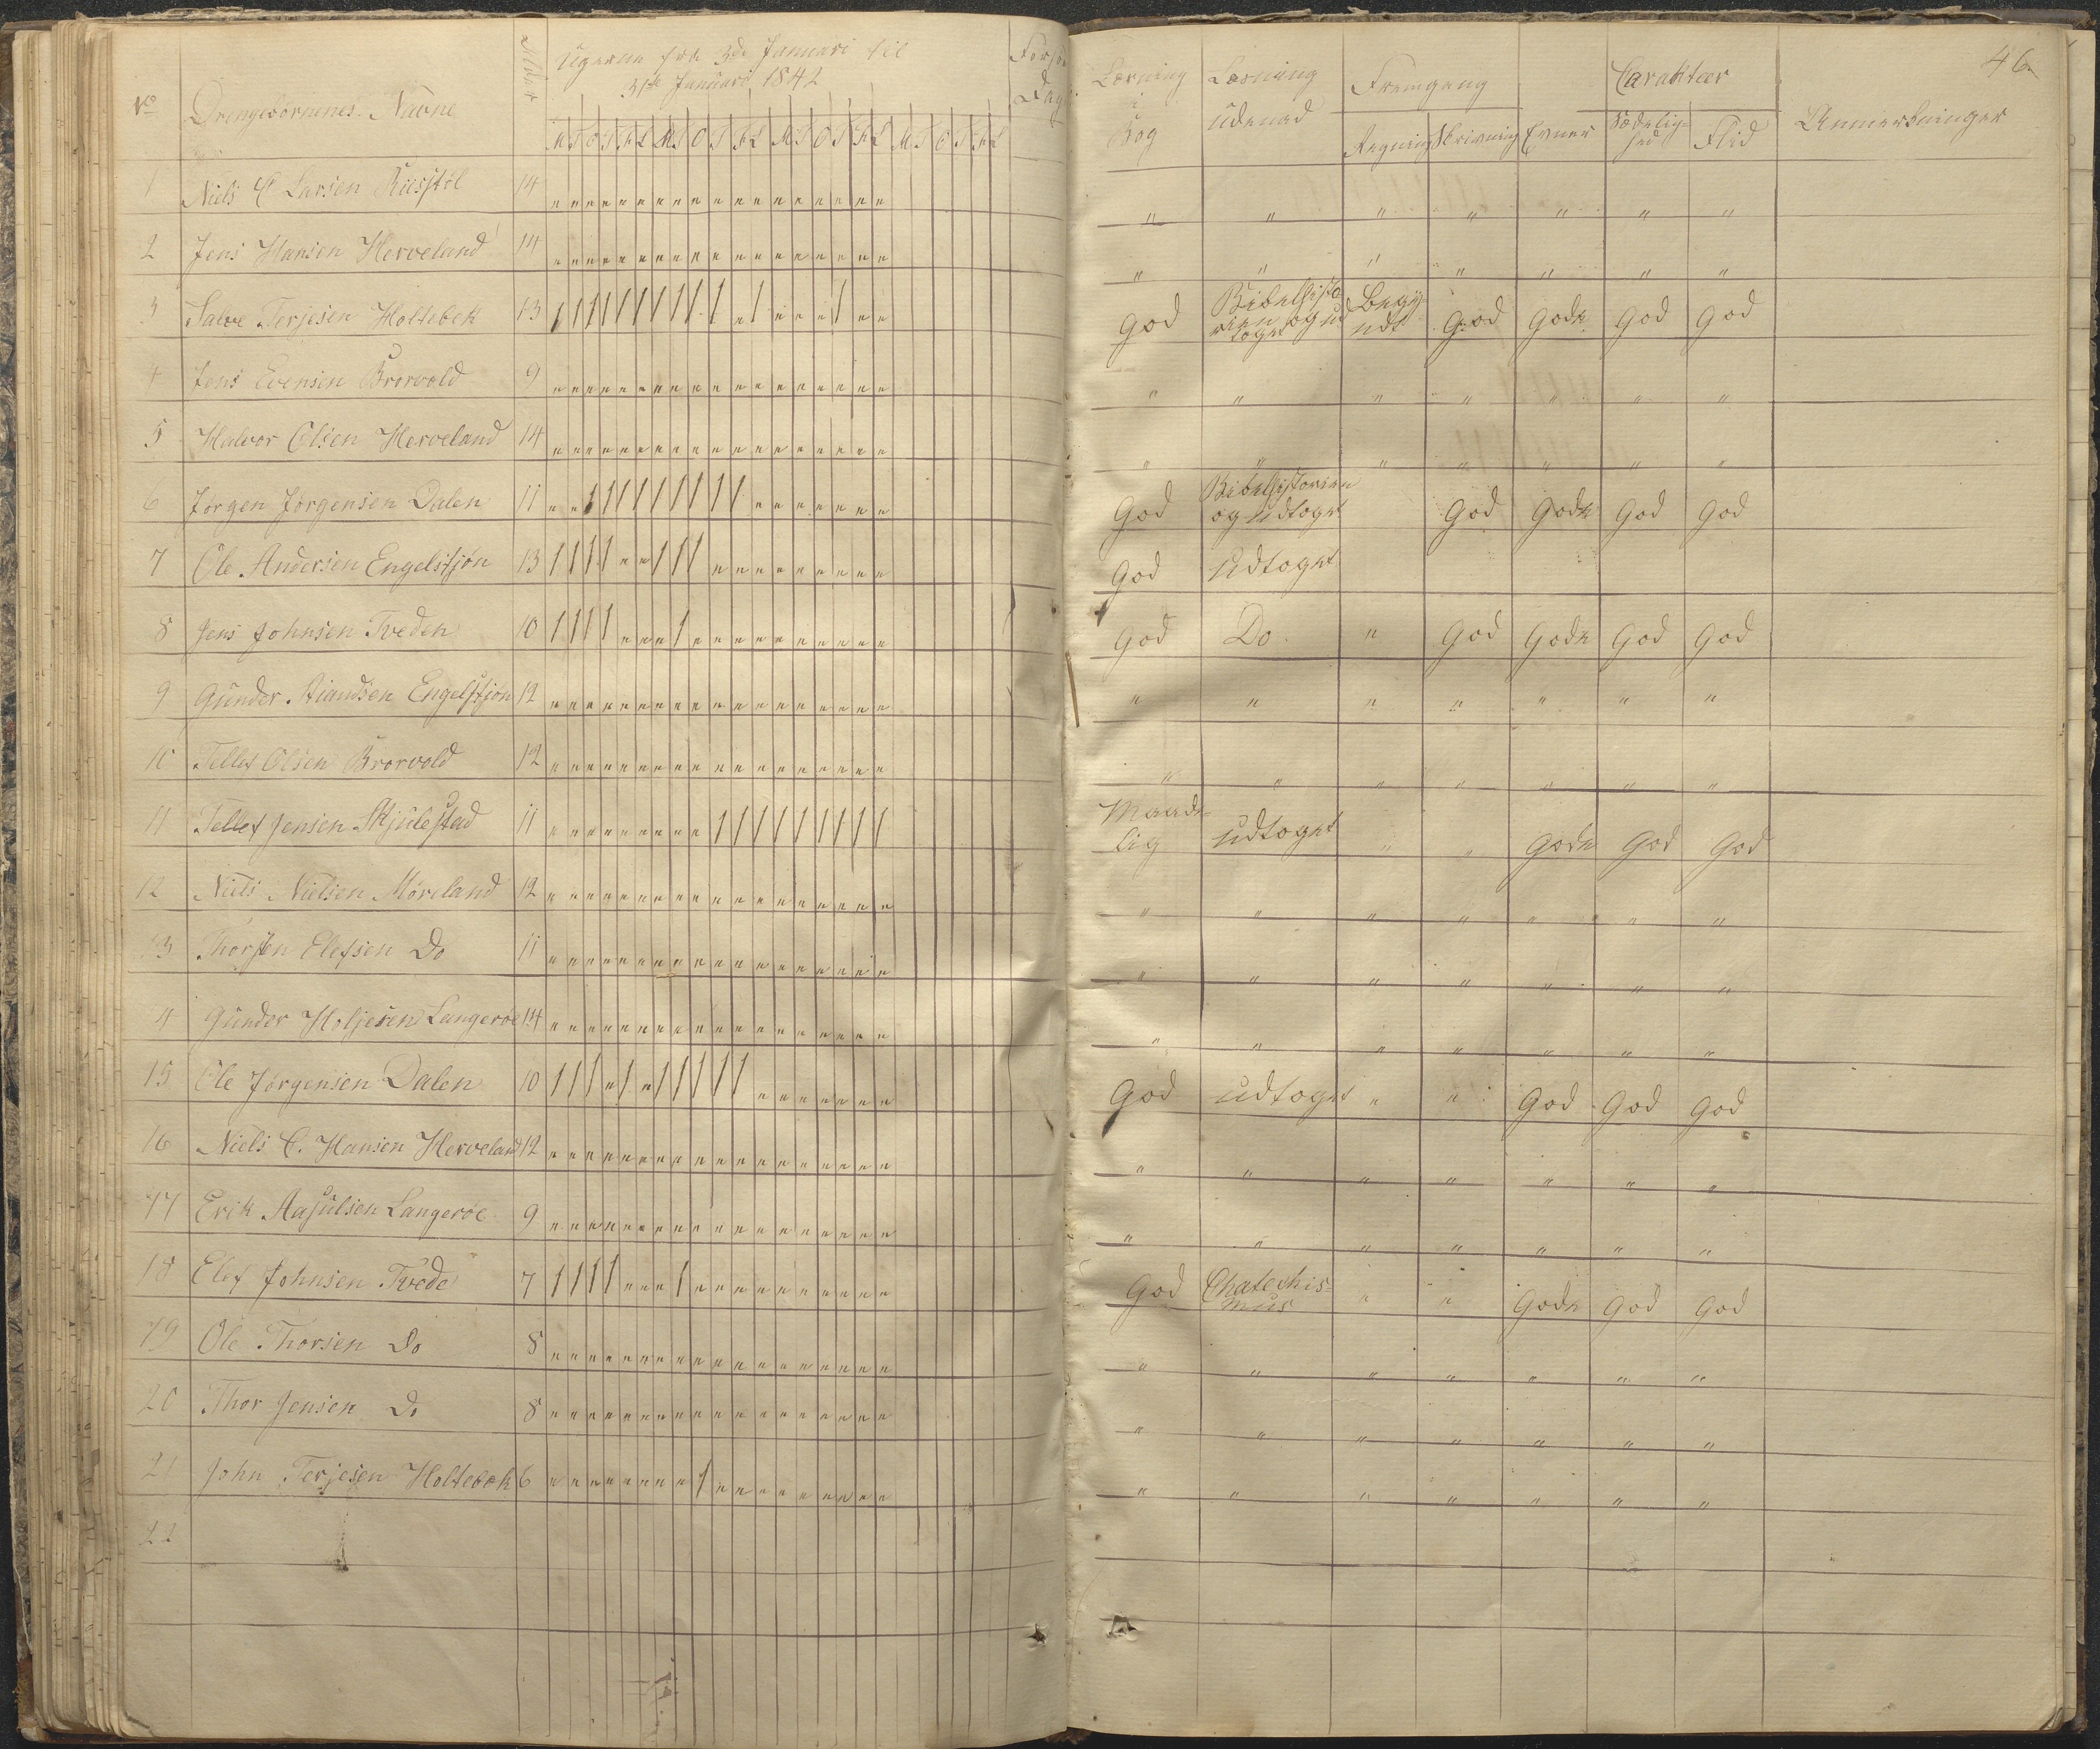 46
Ugerne fra 3de Januari til
31te Januari 1842
No Drengebørnenes Navne Alder
M T O T F L M T O T F L M T O T F L M T O T F L
Dage
Læsning i Bog
Læsning udenad
Fremgang
Regning Skrivning Evner
Carakteer
Sædelighed Flid
Anmerkninger
1 Niels C Larsen Riisstøl 14 " " " " " " "
2 Jens Hansen Herveland 14 " " " " " " "
3 Salve Terjesen Holtebek 13 God Bibelhistorien og udtoget Begyndt God Gode God God
4 Jens Evensen Brorvold 9 " " " " " " "
5 Halvor Olsen Herveland 14 " " " " " " "
6 Jørgen Jørgensen Dalen 11 God Bibelhistorien og udtoget God Gode God God
7 Ole Andersen Engelstjøn 13 God Udtoget
8 Jens Johnsen Tveden 10 God Do " God Gode God God
9 Gunder Engelstjøn 12 " " " " " " "
10 Tellef Olsen Brorvold 12 " " " " " " "
11 Tellef Jensen Skjulestad 11 Maadelig udtoget " " Gode God God
12 Niels Nielsen Møreland 12 " " " " " " "
13 Thorsten Elefsen Do 11 " " " " " " "
14 Gunder Holjesen Langeroe 14 " " " " " " "
15 Ole Jørgensen Dalen 10 God udtoget " " God God God
16 Niels C. Hansen Herveland 12 " " " " " " "
17 Erik Aasulsen Langerøe 9 " " " " " " "
18 Elef Johnsen Tvede 7 God Chatechismus " " Gode God God
19 Ole Thorsen Do 8 " " " " " " "
20 Thor Jensen Do 8 " " " " " " "
21 John Terjesen Holtebek 6 " " " " " " "
22